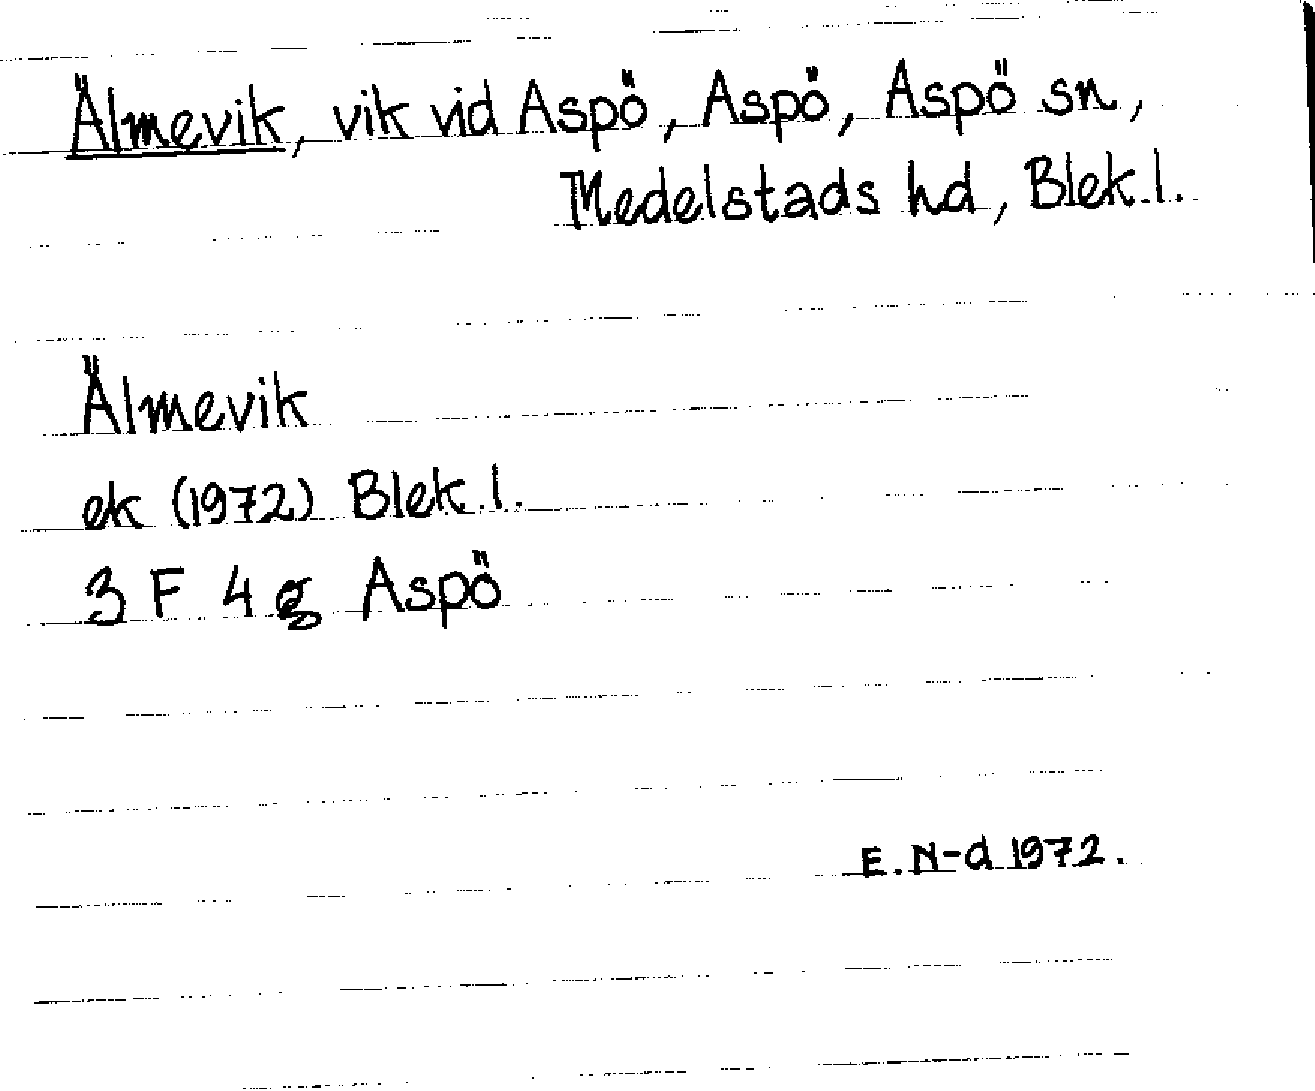 Älmevik, vik vid Aspö, Aspö, Aspö sn,
Medelstads hd, Blek.l.
Älmevik
ek (1972) Blek.l.
3 F 4 g Aspö
E.N-d 1972.